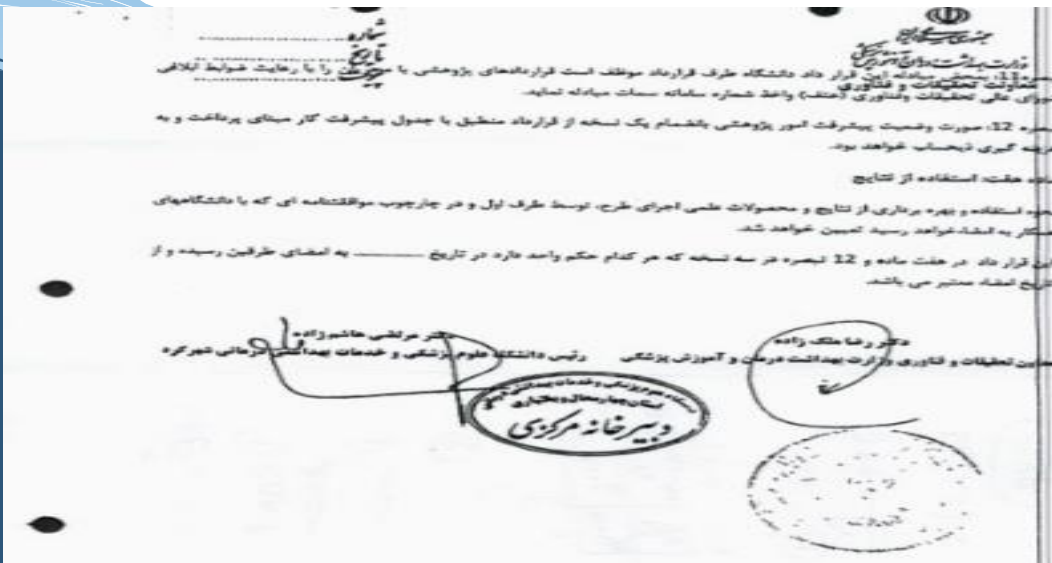 شماره
تاریخ
پیوست
وزارت بهداشت، درمان و آموزش پزشکی
معاونت تحقیقات و فناوری
این قرار داد دانشگاه طرف قرارداد موظف است قراردادهای پژوهشی با مجریان را با رعایت ضوابط ابلاغی
شورای عالی تحقیقات وفناوری (عتف) واخذ شماره سامانه سمات مبادله نماید.
تبصره 12: صورت وضعیت پیشرفت امور پژوهشی بانضمام یک نسخه از قرارداد منطبق با جدول پیشرفت کار مبنای پرداخت و به
هزینه گیری ذیحساب خواهد بود.
ماده هفت: استفاده از نتایج
نحوه استفاده و بهره برداری از نتایج و محصولات علمی اجرای طرح، توسط طرف اول و در چارچوب موافقتنامه ای که با دانشگاههای
همکار به امضاء خواهد رسید تعیین خواهد شد.
این قرار داد در هفت ماده و 12 تبصره در سه نسخه که هر کدام حکم واحد دارد در تاریخ ـــــــــــ به امضای طرفین رسیده و از
تاریخ امضاء معتبر می باشد.
دکتر رضا ملک زاده
معاون تحقیقات و فناوری وزارت بهداشت درمان و آموزش پزشکی
دکتر مرتضی هاشم زاده
رئیس دانشگاه علوم پزشکی و خدمات بهداشتی درمانی شهرکرد
دانشگاه علوم پزشکی و خدمات بهداشتی درمانی
استان چهارمحال و بختیاری
دبیرخانه مرکزی